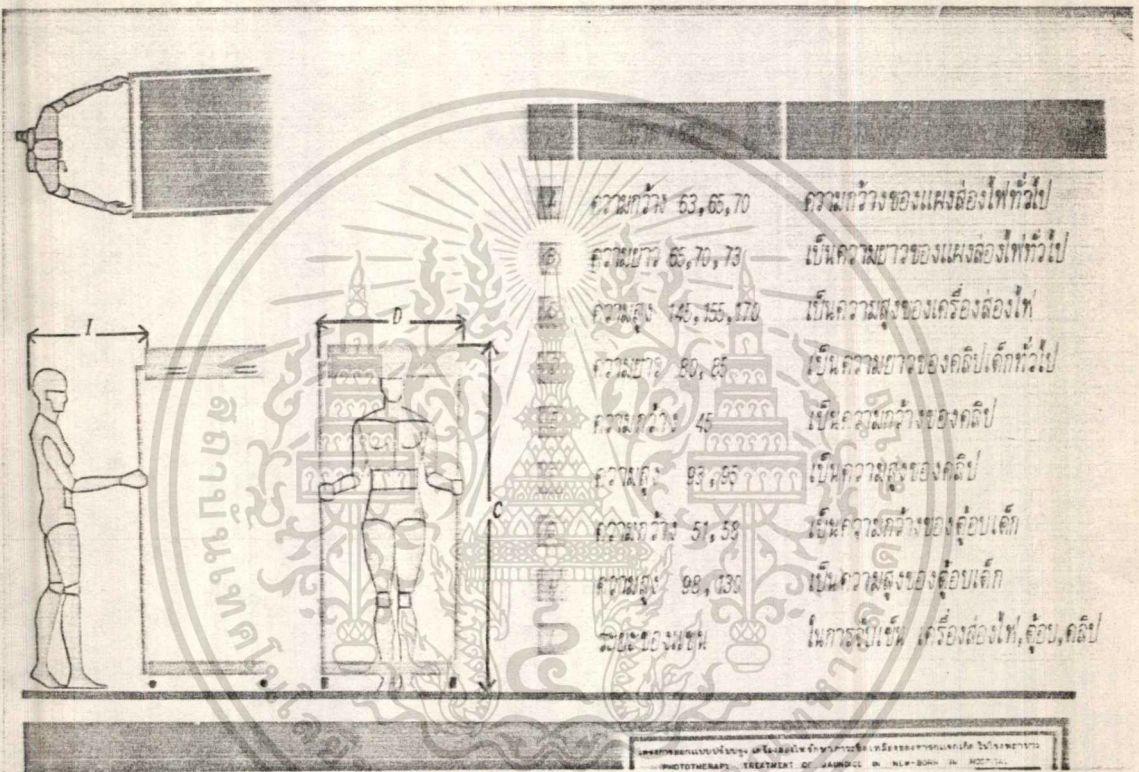 I
D
C
ความกว้าง 63,65,70 ความกว้างของแผงส่องไฟทั่วไป
ความยาว 65,70,73 เป็นความยาวของแผงส่องไฟทั่วไป
ความสูง 145,155,170 เป็นความสูงของเครื่องส่องไฟ
ความยาว 80,85 เป็นความยาวของคลิปเด็กทั่วไป
ความกว้าง 45 เป็นความกว้างของคลิป
ความสูง 93,95 เป็นความสูงของคลิป
ความกว้าง 51,58 เป็นความกว้างของตู้อบเด็ก
ความสูง 98,135 เป็นความสูงของตู้อบเด็ก
ระยะของแขน ในการจับเข็น เครื่องส่องไฟ,ตู้อบ,คลิป
โครงการออกแบบปรับปรุง เครื่องส่องไฟรักษาภาวะตัวเหลืองของทารกแรกเกิด ในโรงพยาบาล
PHOTOTHERAPY TREATMENT OF JAUNDICE IN NEW-BORN IN HOSPITAL